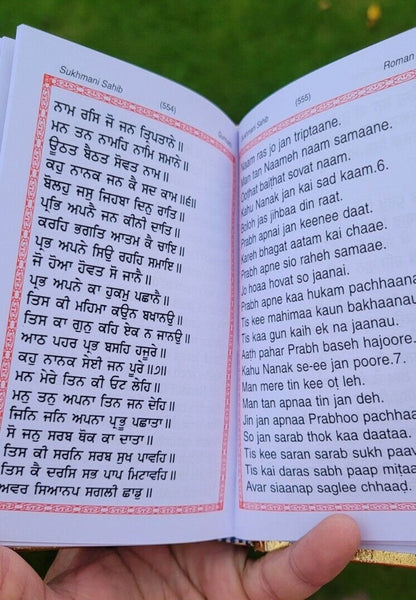 Sukhmani Sahib
(554)
ਨਾਮ ਰਸਿ ਜੋ ਜਨ ਤ੍ਰਿਪਤਾਨੇ॥
ਮਨ ਤਨ ਨਾਮਹਿ ਨਾਮਿ ਸਮਾਨੇ॥
ਊਠਤ ਬੈਠਤ ਸੋਵਤ ਨਾਮ॥
ਕਹੁ ਨਾਨਕ ਜਨ ਕੈ ਸਦ ਕਾਮ॥੬॥
ਬੋਲਹੁ ਜਸੁ ਜਿਹਬਾ ਦਿਨੁ ਰਾਤਿ॥
ਪ੍ਰਭਿ ਅਪਨੈ ਜਨ ਕੀਨੀ ਦਾਤਿ॥
ਕਰਹਿ ਭਗਤਿ ਆਤਮ ਕੈ ਚਾਇ॥
ਪ੍ਰਭ ਅਪਨੇ ਸਿਉ ਰਹਹਿ ਸਮਾਇ॥
ਜੋ ਹੋਆ ਹੋਵਤ ਸੋ ਜਾਨੈ॥
ਪ੍ਰਭ ਅਪਨੇ ਕਾ ਹੁਕਮੁ ਪਛਾਨੈ॥
ਤਿਸ ਕੀ ਮਹਿਮਾ ਕਉਨ ਬਖਾਨਉ॥
ਤਿਸ ਕਾ ਗੁਨੁ ਕਹਿ ਏਕ ਨ ਜਾਨਉ॥
ਆਠ ਪਹਰ ਪ੍ਰਭ ਬਸਹਿ ਹਜੂਰੇ॥
ਕਹੁ ਨਾਨਕ ਸੇਈ ਜਨ ਪੂਰੇ॥੭॥
ਮਨ ਮੇਰੇ ਤਿਨ ਕੀ ਓਟ ਲੇਹਿ॥
ਮਨੁ ਤਨੁ ਅਪਨਾ ਤਿਨ ਜਨ ਦੇਹਿ॥
ਜਿਨਿ ਜਨਿ ਅਪਨਾ ਪ੍ਰਭੂ ਪਛਾਤਾ॥
ਸੋ ਜਨੁ ਸਰਬ ਥੋਕ ਕਾ ਦਾਤਾ॥
ਤਿਸ ਕੀ ਸਰਨਿ ਸਰਬ ਸੁਖ ਪਾਵਹਿ॥
ਤਿਸ ਕੈ ਦਰਸਿ ਸਭ ਪਾਪ ਮਿਟਾਵਹਿ॥
ਅਵਰ ਸਿਆਨਪ ਸਗਲੀ ਛਾਡੁ॥
Sukhmani Sahib
(555)
Roman
Naam ras jo jan triptaane.
Man tan Naameh naam samaane.
Oothat baithat sovat naam.
Kahu Nanak jan kai sad kaam.6.
Boloh jas jihbaa din raat.
Prabh apnai jan keenee daat.
Kareh bhagat aatam kai chaae.
Prabh apne sio raheh samaae.
Jo hoaa hovat so jaanai.
Prabh apne kaa hukam pachhaana
Tis kee mahimaa kaun bakhaanau
Tis kaa gun kaih ek na jaanau.
Aath pahar Prabh baseh hajoore.
Kahu Nanak se-ee jan poore.7.
Man mere tin kee ot leh.
Man tan apnaa tin jan deh.
Jin jan apnaa Prabhoo pachhaa
So jan sarab thok kaa daataa.
Tis kee saran sarab sukh paav
Tis kai daras sabh paap mitaa
Avar siaanap saglee chhaad.